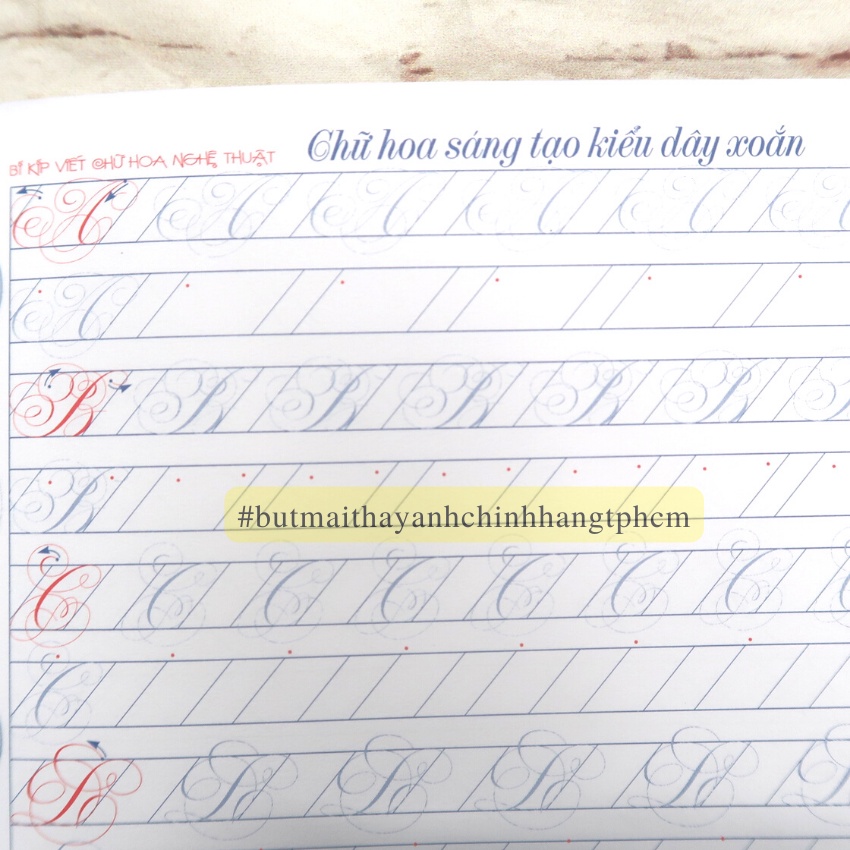 BÍ KÍP VIẾT CHỮ HOA NGHỆ THUẬT
Chữ hoa sáng tạo kiểu dây xoắn
A A A A A A
A
B B B B B B B
B
#butmaithayanhchinhhangtphcm
C C C C C C C
C
D D D D D D